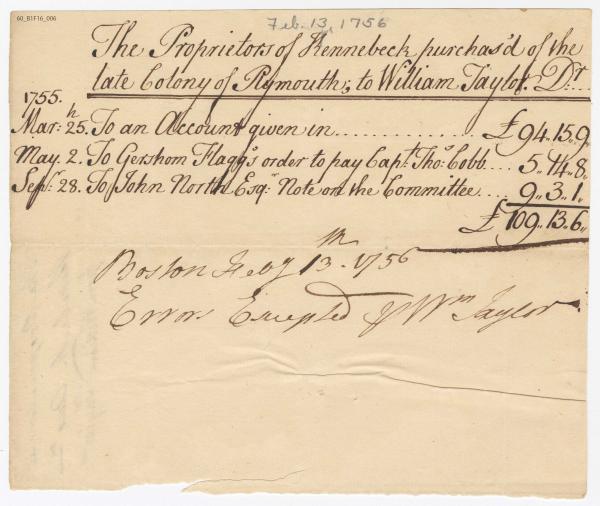 60_B1F16_006
Feb. 13, 1756
The Proprietors of Kennebeck purchas'd of the
late Colony of Plymouth; to William Taylor. Dr.
1755.
Marh. 25. To an Account given in ............ £94..15..9
May. 2. To Gershom Flagg's order to pay Capt. Thos. Cobb .... 5..14..8
Sepr. 28. To John North Esqr. Note on the Committee .... 9..3..1
£109..13..6
Boston Feby 13th. 1756
Errors Excepted Wm Taylor